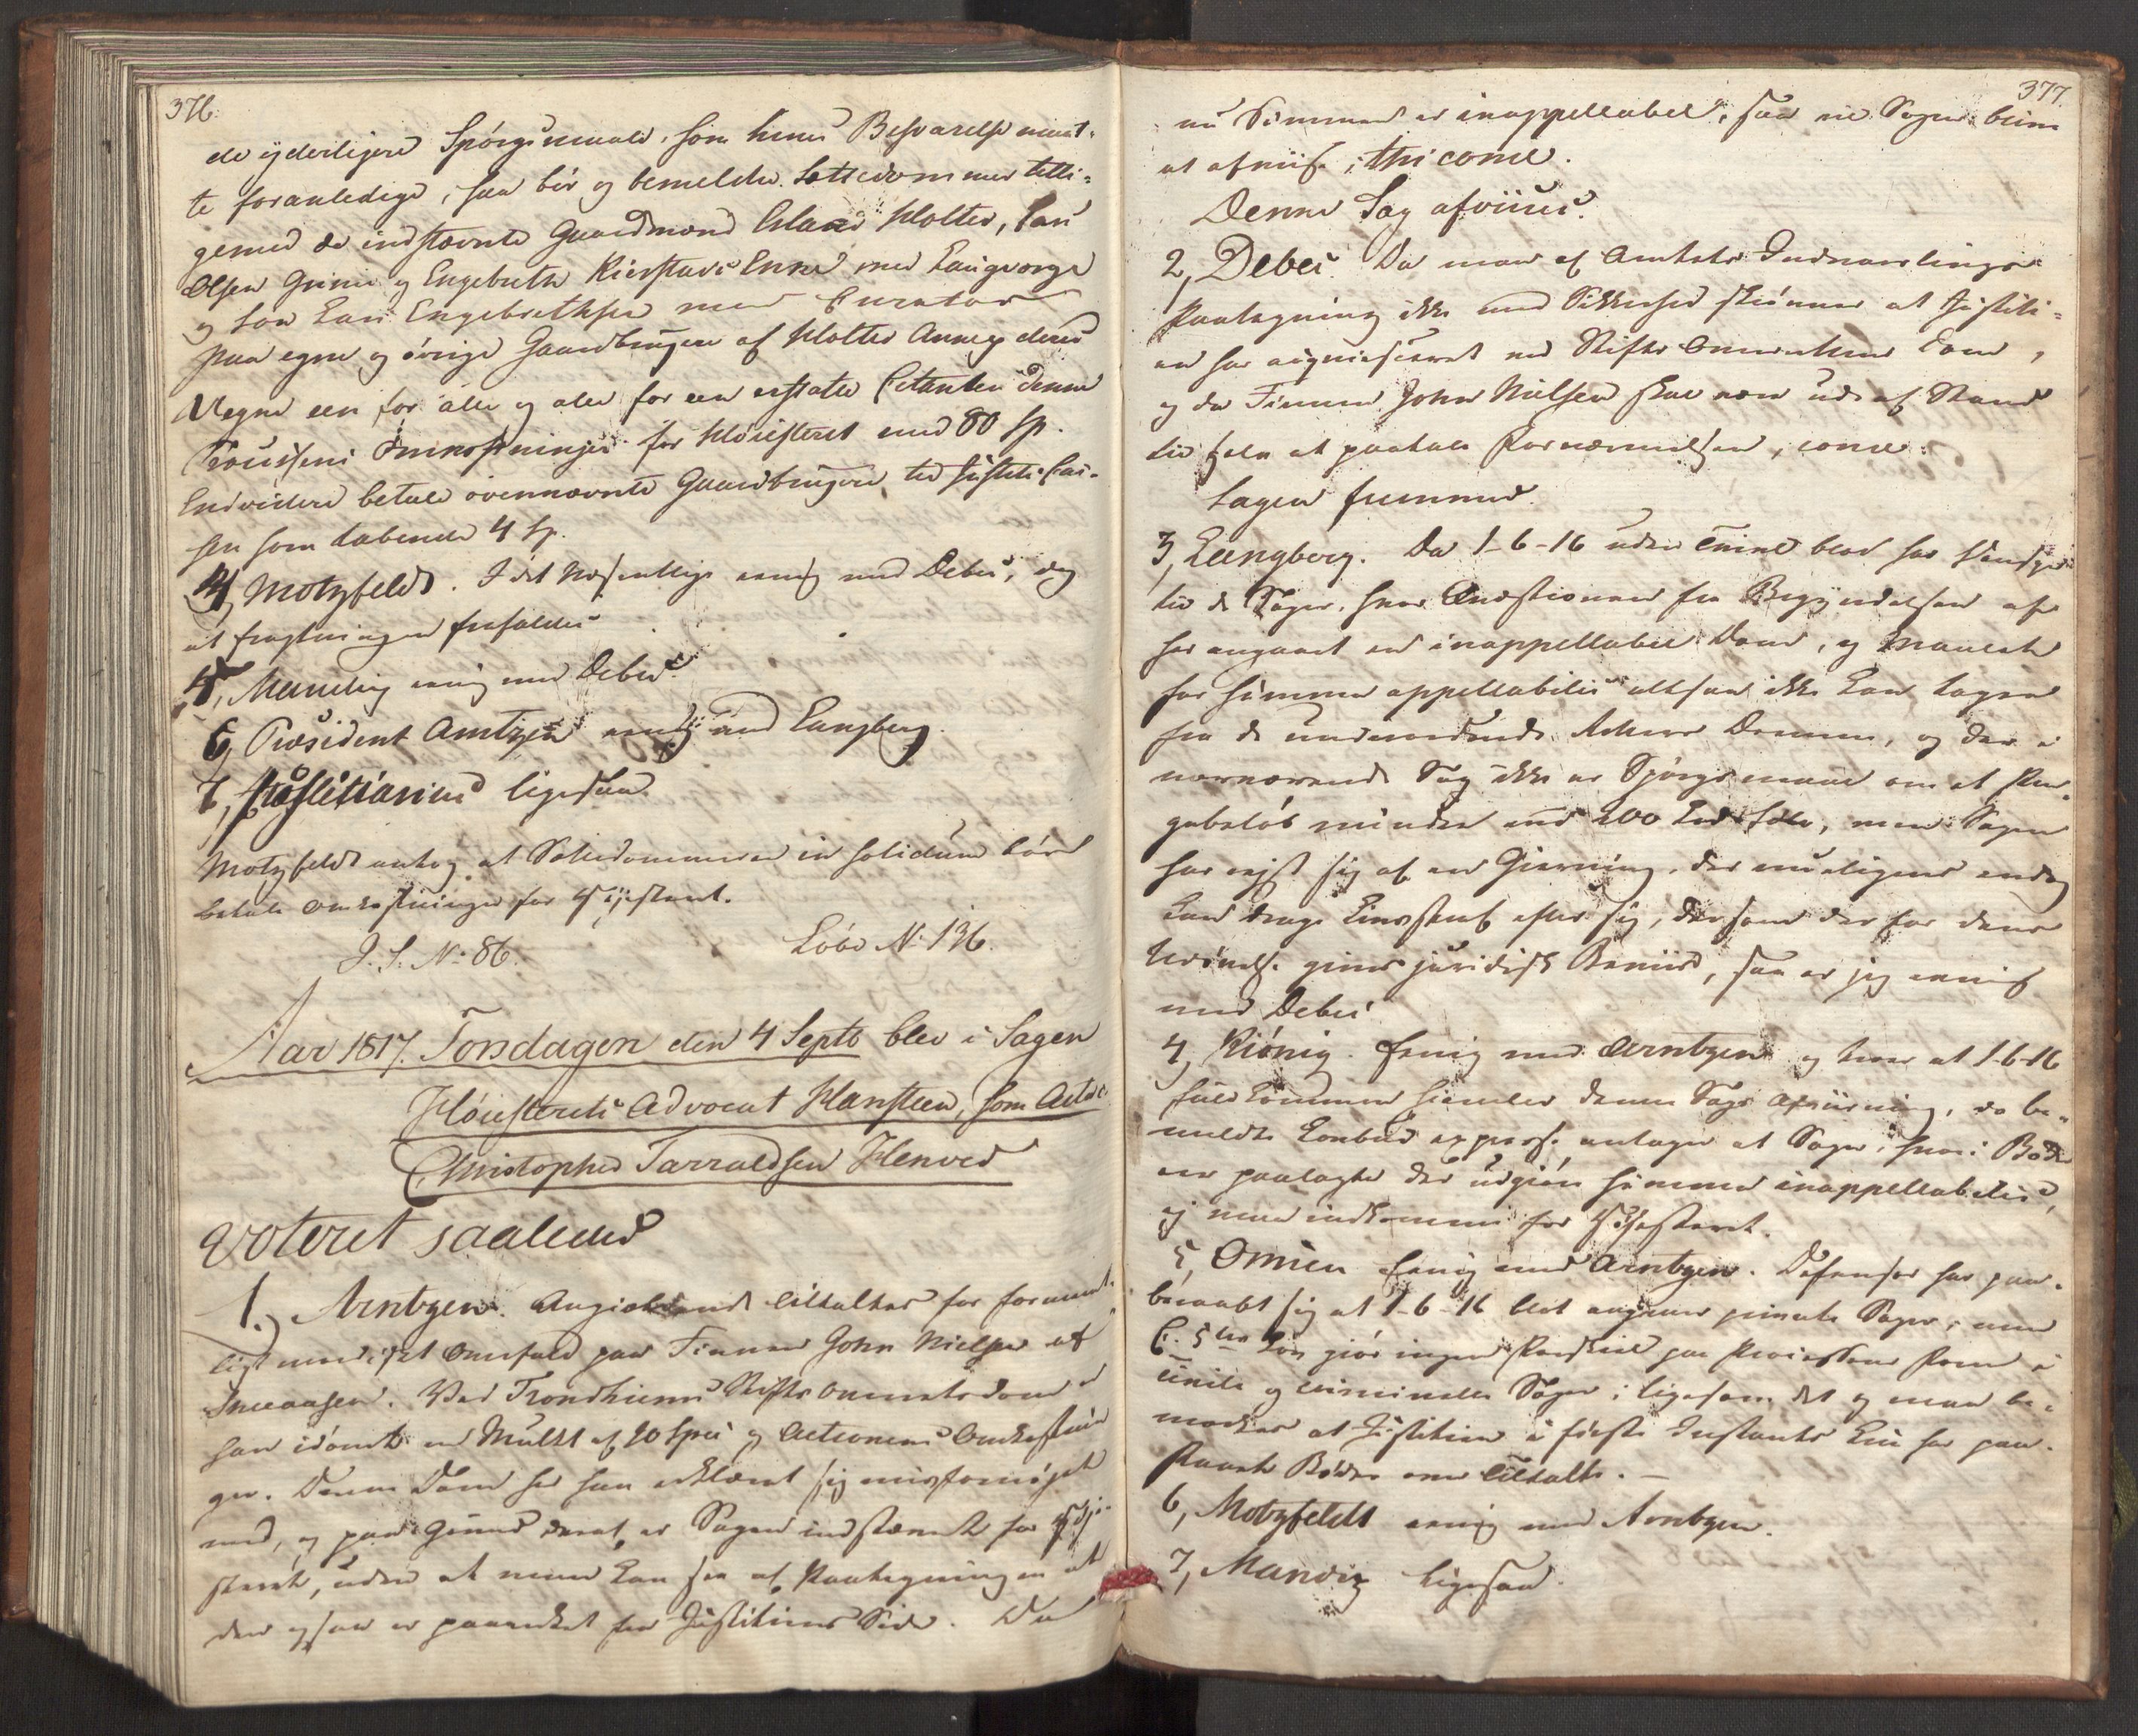 376.
de yderligere Spörgsmaale, som hines Besvarelse maat-
te foranledige, saa bör og bemeldte Sættedommer tilli-
gemed de indstævnte Gaardmænd Erland Holter, Lars
Olsen Grinie og Engebreth Kierstads Enke med Laugværge
og Søn Lars Engebrethsen med Curator
paa egne og övrige Gaardbrugere af Holter Annex deres
Vegne een for alle og alle for een erstatte Citanten denne
Processens Omkostninger for Höiesteret med 80 Sp.
Endvidere betale ovennævnte Gaardbrugere til Justits Cas-
sen som tabende 4 Sp.
4, Motzfeldt. I det Væsentlige eenig med Debes, dog
at fragtningen frafaldes
5, Mandix eenig med Debes.
6, Præsident Arntzen eenig med Langberg.
7, Justitiarius ligesaa
Motzfeldt antog at Sættedommeren in solidum burde
betale Omkostninger for Höjesteret.
J. S. No 86. Löbe No 136.
Aar 1817. Torsdagen den 4 Septb blev i Sagen
Höiesterets Advocat Hansteen, som Actor c
Christopher Tarraldsen Henved
voteret saaledes
1.) Arntzen. Angieldende tiltaltes for forment-
ligt nordiskt Overfald paa Finnen John Nielsen af
Snaasen. Ved Trondhiems Stifts Overrets Dom er
han idömt en Mulkt af 20 Spec og Actionens Omkostnin
ger. Denne Dom har han erklæret sig misfornöjet
med, og paa Grund deraf er Sagen indstævnet for Höje-
steret, uden at man kan see af Paategningen at
den ogsaa er paaanket fra Justitiens Side. Da
377.
nu Summen er inappellabel, saa vil Sagen blive
at afviise; thi conel.
Denne Sag afviises.
2, Debes. Da man af Amtets Indvarslings
Paategning ikke med Sikkerhed skiönner at Justiti-
en har acquiesceret ved Stifts Overrettens Dom,
og da Finnen John Nielsen skal være ude af Stand
til selv at paatale Fornærmelsen, conel.
Sagen fremmes.
3, Langberg. Da 1-6-16 uden Tvivl blot har Hensyn
til de Sager, hvor Qvæstionen fra Begyndelsen af
har angaaet en inappellabel Dom, og Maalet
for summa appellabilis altsaa ikke kan tages
fra de underordnede Retters Domme, og der i
nærværende Sag ikke er Spörgsmaal om et Pen-
gebeløb mindre end 200 Lod Sölv, men Sagen
har reist sig af en Gierning, der mueligens endog
kan drage Livsstraf efter sig, dersom der for dens
Udövelse gives juridisk Beviis, saa er jeg eenig
med Debes
4, Kiönig. Eenig med Arntzen og troer at 1-6-16
fuldkommen hiemler denne Sags Afviisning, da be-
meldte Lovbud expresse antager at Sager, hvori Böder
ere paalagte der udgiör summa inappellabilis,
ej maa indkomme for Höjesteret.
5, Omsen Eenig med Arntzen. Defensor har paa-
beraabt sig at 1-6-16 blot angaaer private Sager; men
C. 5tes Lov giör ingen Forskiel paa Processens Form i
civile og criminelle Sager; ligesom det og maa be-
mærkes at Justitien i förste Instants kun har paa-
staaet Böder over Tiltalte. —
6, Motzfeldt eenig med Arntzen.
7, Mandix ligesaa.